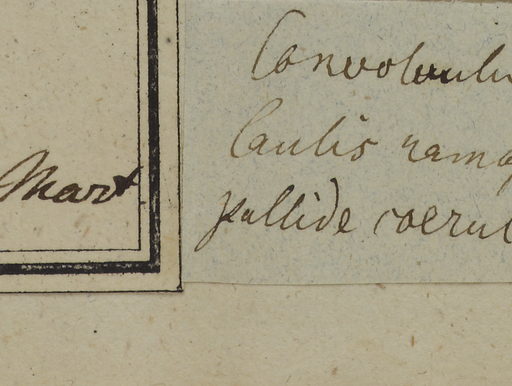 Mart.
Convolvulu
Caulis ramo
pallide coerul